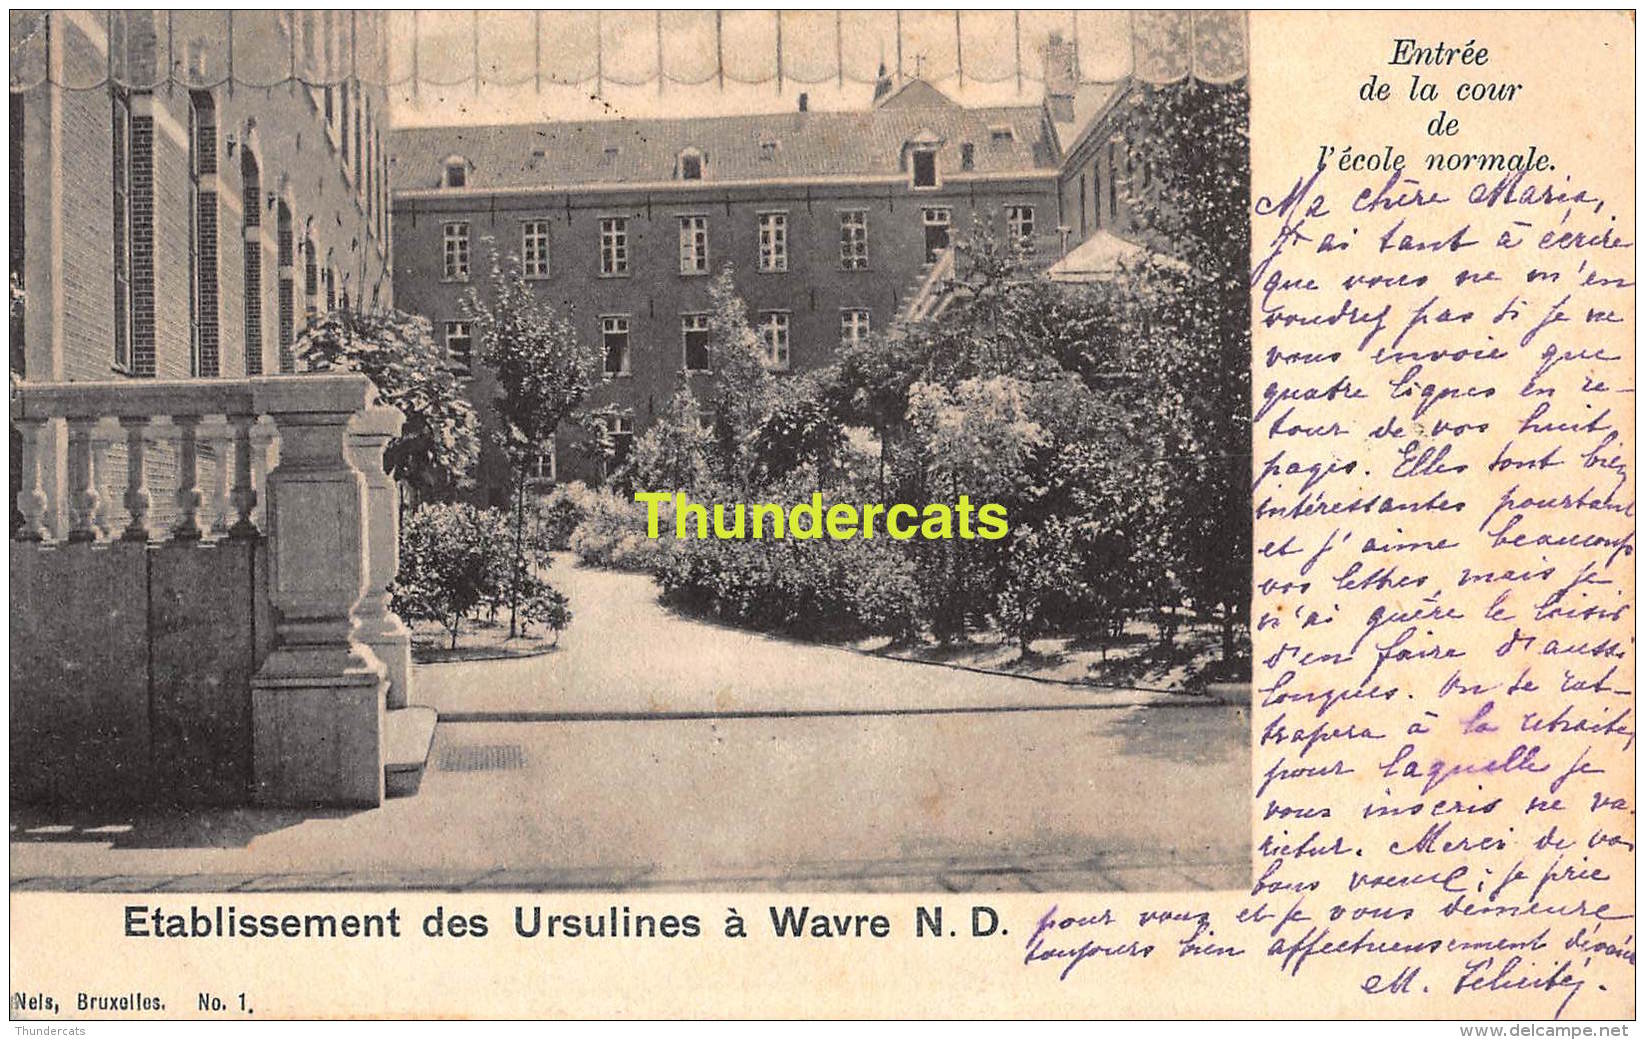 Entrée
de la cour
de
l'école normale.
Ma chère Maria,
J'ai tant à écrire
que vous ne m'en
voudrez pas si je ne
vous envoie que
quatre lignes en re-
tour de vos huit
pages. Elles sont bien
intéressantes pourtant
et j'aime beaucoup
vos lettres, mais je
n'ai guère le loisir
d'en faire d'aussi
longues. On se rat-
trapera à la retraite,
pour laquelle je
vous inscris ne va-
rietur. Merci de vos
bons voeux; je prie
pour vous et je vous demeure
toujours bien affectueusement dévouée
M. Félicité.
Thundercats
Etablissement des Ursulines à Wavre N. D.
Nels, Bruxelles. No. 1.
Thundercats
www.delcampe.net